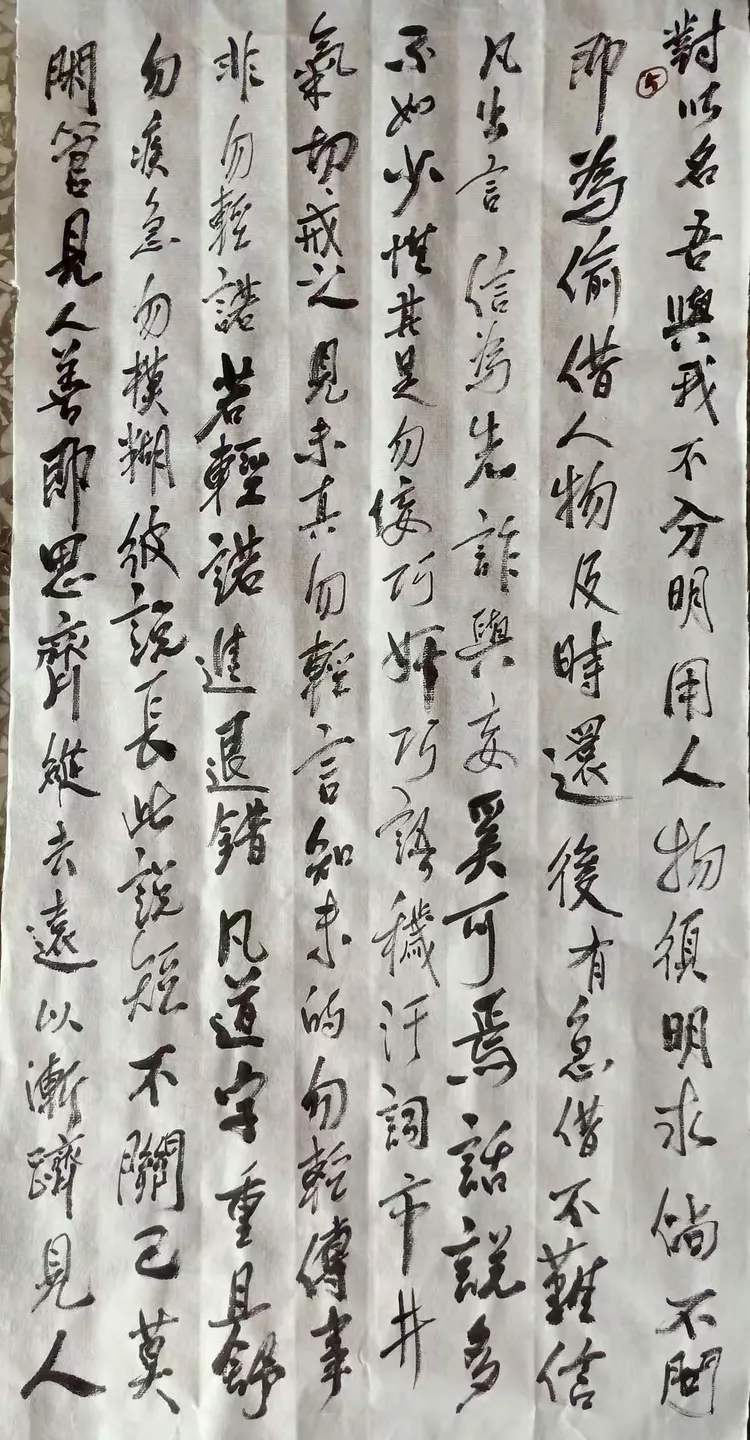 對以名吾與我不分明用人物須明求倘不問
⑤
即為偷借人物及時還後有急借不難信
凡出言信為先詐與妄奚可焉話說多
不如少惟其是勿佞巧奸巧語穢汙詞市井
氣切戒之見未真勿輕言知未的勿輕傳事
非勿輕諾若輕諾進退錯凡道字重且舒
勿疾急勿模糊彼說長此說短不關己莫
閒管見人善即思齊縱去遠以漸躋見人